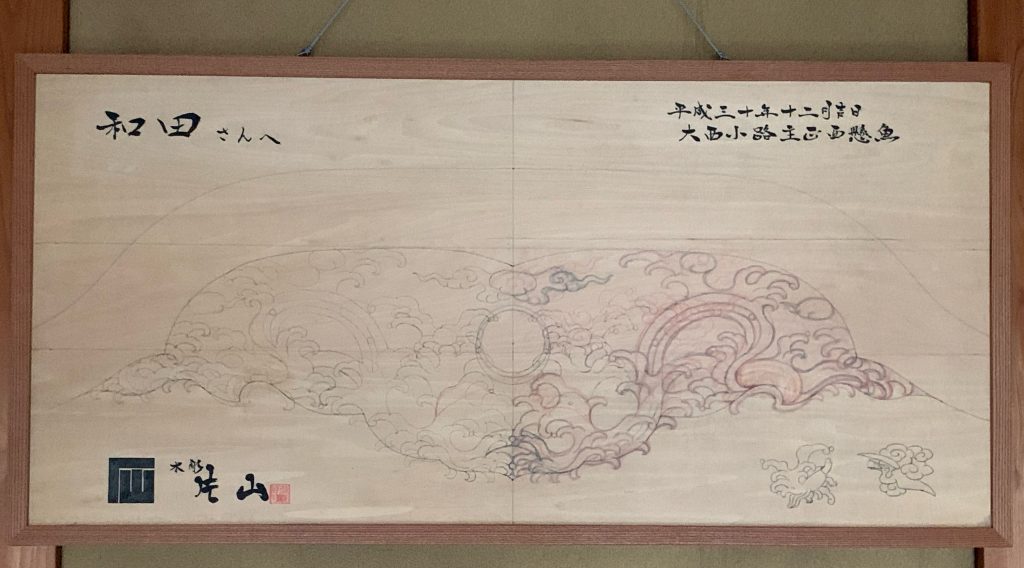 平成三十年十二月吉日
大西小路主正面懸魚
和田さんへ
木彫
片山